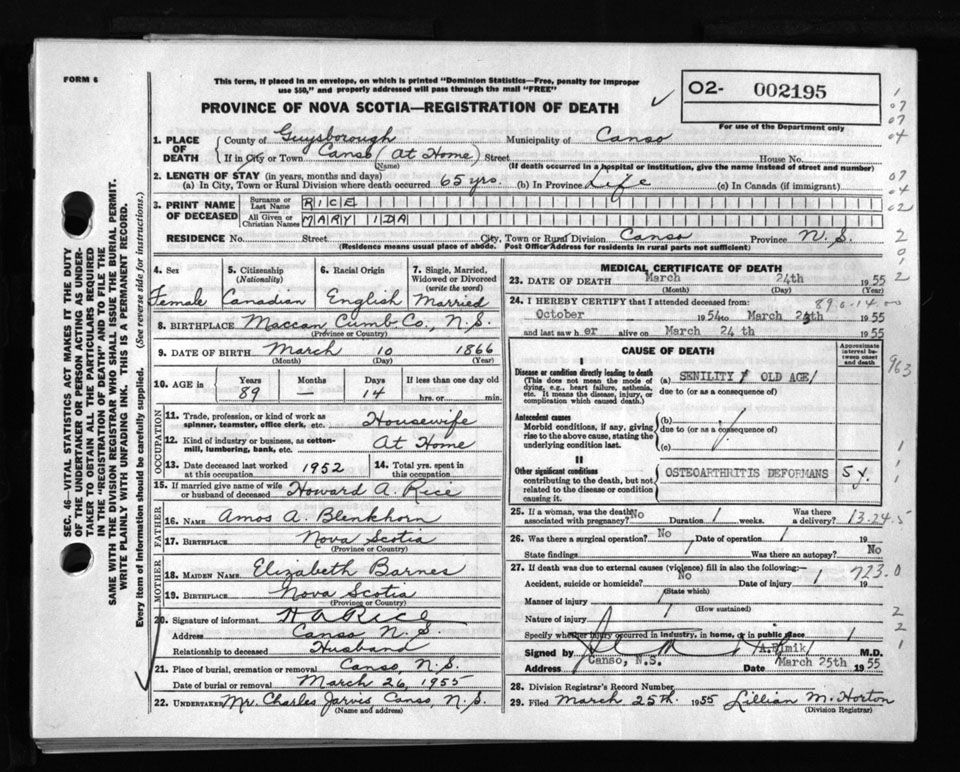 FORM 6
This form, if placed in an envelope, on which is printed "Dominion Statistics—Free, penalty for improper
use $50," and properly addressed will pass through the mail "FREE"
PROVINCE OF NOVA SCOTIA—REGISTRATION OF DEATH
O2- 002195
For use of the Department only
SEC. 46—VITAL STATISTICS ACT MAKES IT THE DUTY
OF THE UNDERTAKER OR PERSON ACTING AS UNDER-
TAKER TO OBTAIN ALL THE PARTICULARS REQUIRED
IN THE "REGISTRATION OF DEATH" AND TO FILE THE
SAME WITH THE DIVISION REGISTRAR WHO SHALL ISSUE THE BURIAL PERMIT.
WRITE PLAINLY WITH UNFADING INK. THIS IS A PERMANENT RECORD.
Every item of information should be carefully supplied. (See reverse side for instructions.)
1. PLACE OF DEATH
County of Guysborough Municipality of Canso
If in City or Town Canso (At Home) Street House No.
(Name) (If death occurred in a hospital or institution, give the name instead of street and number)
2. LENGTH OF STAY (in years, months and days)
(a) In City, Town or Rural Division where death occurred 65 yrs. (b) In Province Life (c) In Canada (if immigrant)
3. PRINT NAME OF DECEASED
Surname or Last Name RICE
All Given or Christian Names MARY IDA
RESIDENCE No. Street City, Town or Rural Division Canso Province N.S.
(Residence means usual place of abode. Post Office Address for residents in rural parts not sufficient)
4. Sex Female
5. Citizenship (Nationality) Canadian
6. Racial Origin English
7. Single, Married, Widowed or Divorced (write the word) Married
8. BIRTHPLACE Maccan Cumb Co., N.S.
(Province or Country)
9. DATE OF BIRTH March 10 1866
(Month) (Day) (Year)
10. AGE in Years 89 Months — Days 14 If less than one day old hrs. or min.
OCCUPATION
11. Trade, profession, or kind of work as spinner, teamster, office clerk, etc. Housewife
12. Kind of industry or business, as cotton-mill, lumbering, bank, etc. At Home
13. Date deceased last worked at this occupation 1952 14. Total yrs. spent in this occupation
15. If married give name of wife or husband of deceased Howard A. Rice
FATHER
16. NAME Amos A. Blenkhorn
17. BIRTHPLACE Nova Scotia
(Province or Country)
MOTHER
18. MAIDEN NAME Elizabeth Barnes
19. BIRTHPLACE Nova Scotia
(Province or Country)
20. Signature of informant H A Rice
Address Canso N.S.
Relationship to deceased Husband
21. Place of burial, cremation or removal Canso, N.S.
Date of burial or removal March 26, 1955
22. UNDERTAKER Mr. Charles Jarvis Canso, N.S.
(Name and address)
MEDICAL CERTIFICATE OF DEATH
23. DATE OF DEATH March 24th 1955
(Month) (Day) (Year)
24. I HEREBY CERTIFY that I attended deceased from:
October 1954 to March 24th 1955
and last saw her alive on March 24 th 1955
CAUSE OF DEATH
Approximate interval between onset and death
I
Disease or condition directly leading to death
(This does not mean the mode of dying, e.g., heart failure, asthenia, etc. It means the disease, injury, or complication which caused death.)
(a) SENILITY / OLD AGE/
due to (or as a consequence of)
Antecedent causes
Morbid conditions, if any, giving rise to the above cause, stating the underlying condition last.
(b)
due to (or as a consequence of)
(c)
II
Other significant conditions contributing to the death, but not related to the disease or condition causing it.
OSTEOARTHRITIS DEFORMANS 5 y.
25. If a woman, was the death associated with pregnancy? No Duration weeks. Was there a delivery?
13-24.5
26. Was there a surgical operation? No Date of operation 19
State findings Was there an autopsy? No
27. If death was due to external causes (violence) fill in also the following:—
Accident, suicide or homicide? No Date of injury 19
723.0
(State which)
Manner of injury
(How sustained)
Nature of injury
Specify whether injury occurred in industry, in home, or in public place
Signed by M.D.
Address Canso, N.S. Date March 25th 1955
28. Division Registrar's Record Number
29. Filed March 25th. 1955 Lillian M. Horton
(Division Registrar)